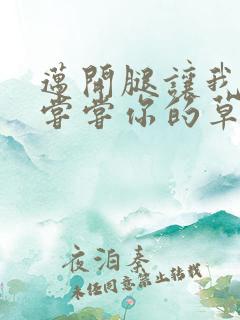 邁開腿讓我
嘗嘗你的草
夜泊秦
未经同意禁止转载